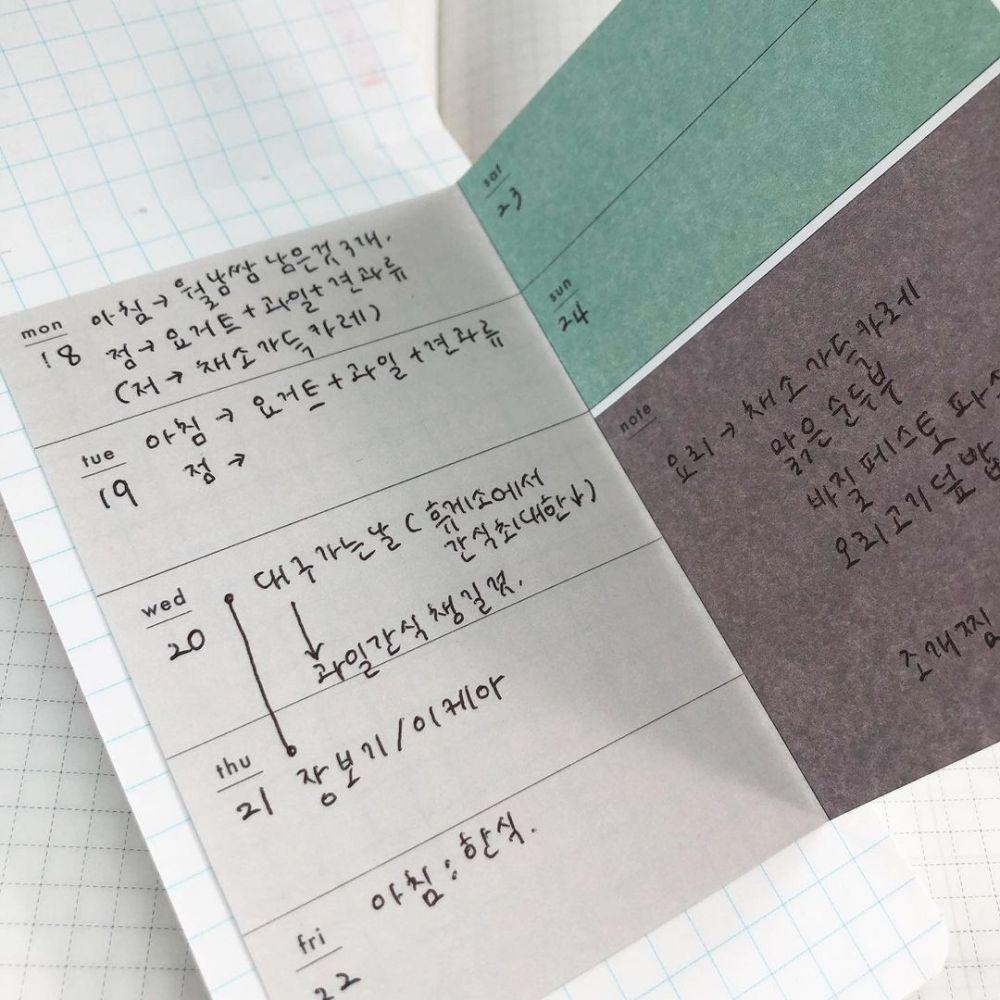 mon
18
아침 → 월남쌈 남은것 3개.
점 → 요거트 + 과일 + 견과류
(저 → 채소가득카레)
tue
19
아침 → 요거트 + 과일 + 견과류
점 →
wed
20
대구가는날 ( 휴게소에서
간식최대한↓)
↓
과일간식 챙길것.
thu
21
장보기 / 이케아
아침 : 한식.
fri
22
sat
23
sun
24
note
요리 → 채소가득카레
맑은 순두부
바질페스토
오리고기덮밥
조개찜